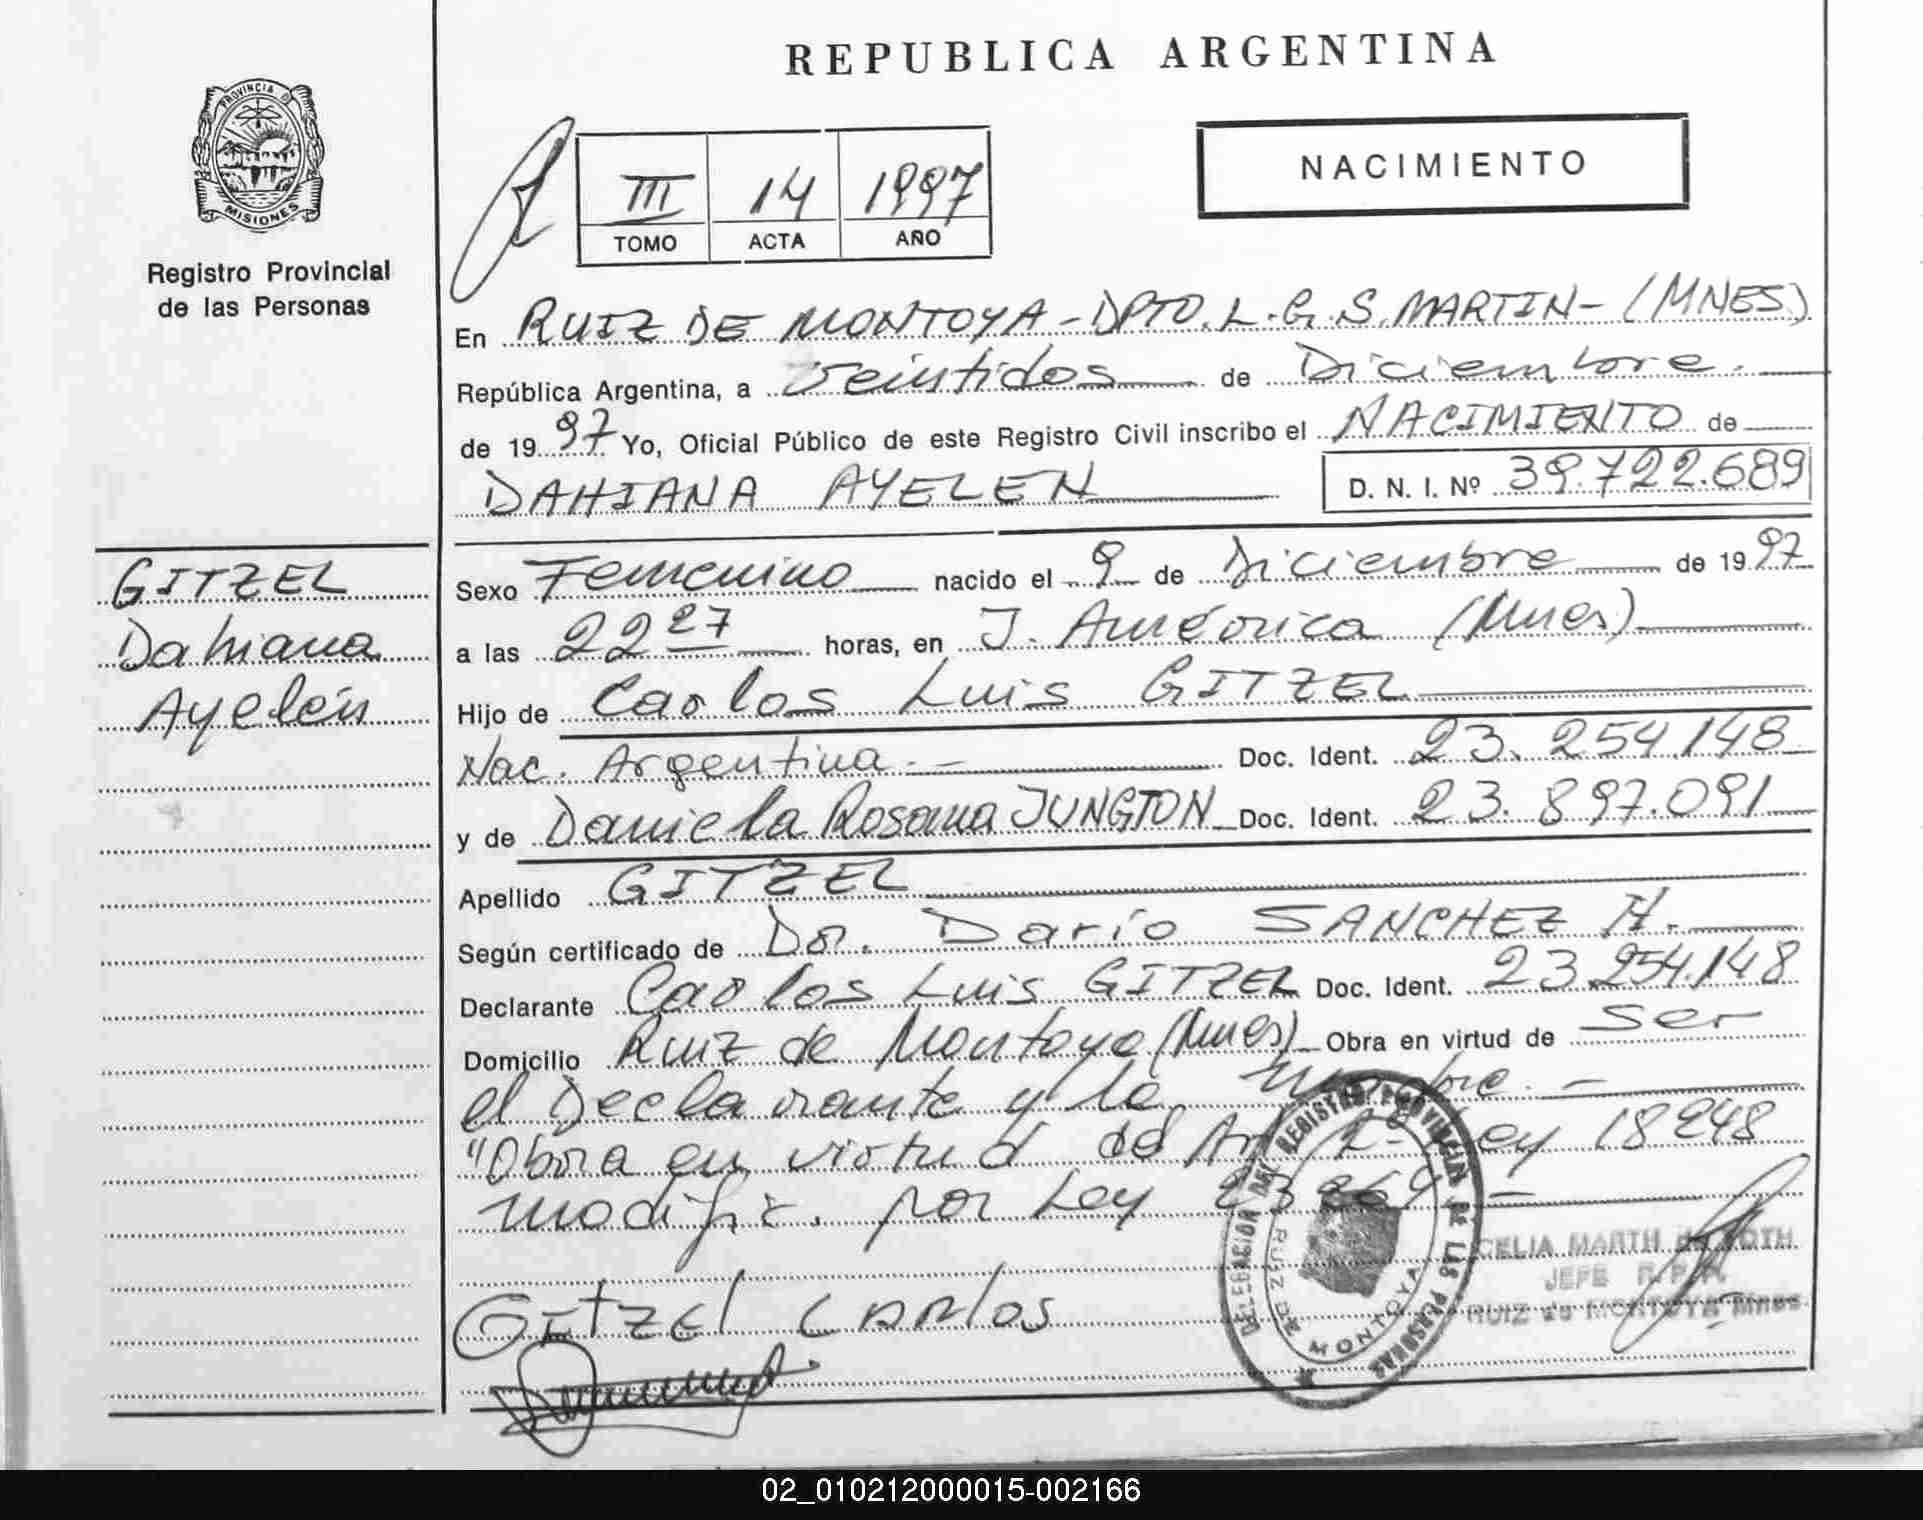 REPUBLICA ARGENTINA
PROVINCIA DE
MISIONES
Registro Provincial
de las Personas
III 14 1997
TOMO ACTA AÑO
NACIMIENTO
En RUIZ DE MONTOYA - DPTO. L. G. S. MARTIN - (MNES)
República Argentina, a veintidos de Diciembre.
de 19 97 Yo, Oficial Público de este Registro Civil inscribo el NACIMIENTO de
DAHIANA AYELEN D. N. I. Nº 39.722.689
GITZEL
Dahiana
Ayelén
Sexo Femenino nacido el 9 de Diciembre de 19 97
a las 22 27 horas, en J. América (Mnes)
Hijo de Carlos Luis GITZEL
Nac. Argentina.- Doc. Ident. 23.254.148
y de Daniela Rosana JUNGTON Doc. Ident. 23.897.091
Apellido GITZEL
Según certificado de Dr. Darío SANCHEZ H.
Declarante Carlos Luis GITZEL Doc. Ident. 23.254.148
Domicilio Ruiz de Montoya (Mnes) Obra en virtud de ser
el Declarante y la madre.-
"Obra en virtud del Art 2º Ley 18248
modific. por Ley 23264 -
GitzEl CARlos
DELEGACION DEL REGISTRO PROVINCIAL DE LAS PERSONAS
RUIZ DE MONTOYA
CELIA MARTH de TOTH
JEFE R.P.P.
RUIZ de MONTOYA Mnes
02_010212000015-002166